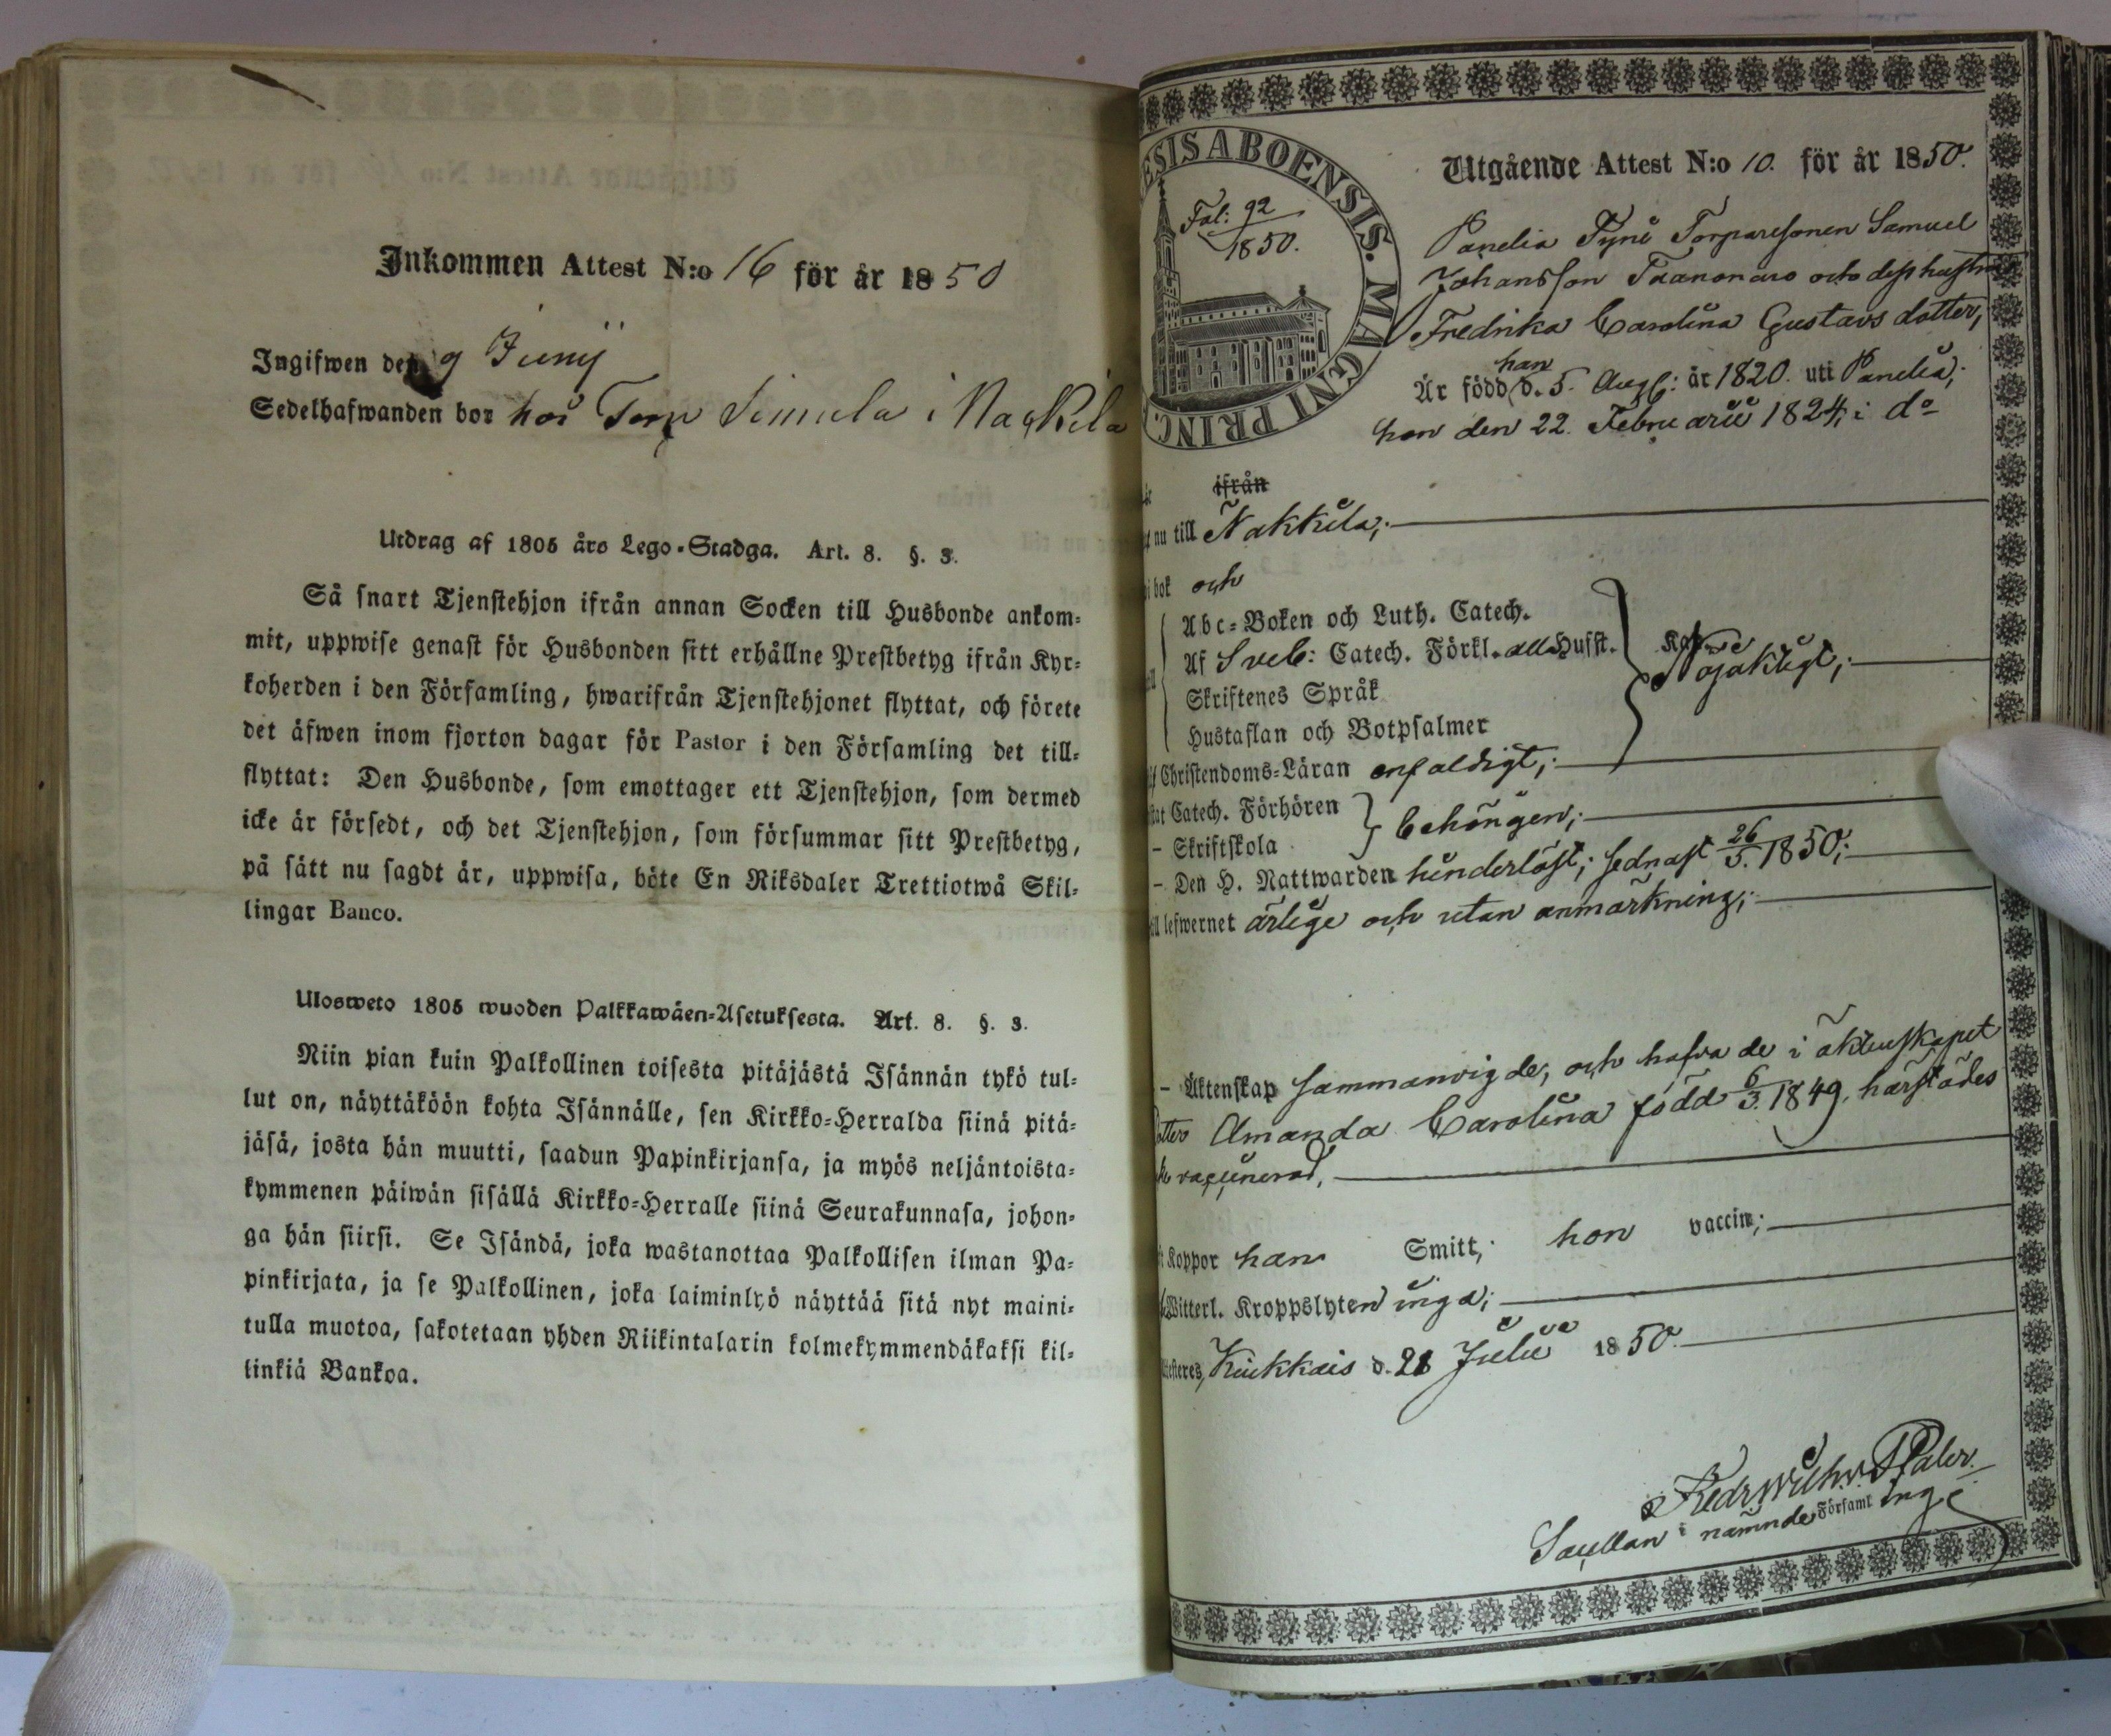 Inkommen Attest N:o 16 för år 1850
Ingifwen den 9 Junij
Sedelhafwanden bor hos Torp Simula i Nackila
Utdrag af 1805 års Lego-Stadga. Art. 8. §. 3.
Så snart Tjenstehjon ifrån annan Socken till Husbonde ankom-
mit, uppwise genast för Husbonden sitt erhållne Prestbetyg ifrån Kyr-
koherden i den Församling, hwarifrån Tjenstehjonet flyttat, och förete
det äfwen inom fjorton dagar för Pastor i den Församling det till-
flyttat: Den Husbonde, som emottager ett Tjenstehjon, som dermed
icke är försedt, och det Tjenstehjon, som försummar sitt Prestbetyg,
på sätt nu sagdt är, uppwisa, böte En Riksdaler Trettiotwå Skil-
lingar Banco.
Ulosweto 1805 wuoden Palkkawäen-Asetuksesta. Art. 8. §. 3.
Niin pian kuin Palkollinen toisesta pitäjästä Isännän tykö tul-
lut on, näyttäköön kohta Isännälle, sen Kirkko-Herralda siinä pitä-
jäsä, josta hän muutti, saadun Papinkirjansa, ja myös neljäntoista-
kymmenen päiwän sisällä Kirkko-Herralle siinä Seurakunnasa, johon-
ga hän siirsi. Se Isändä, joka wastanottaa Palkollisen ilman Pa-
pinkirjata, ja se Palkollinen, joka laiminlyö näyttää sitä nyt maini-
tulla muotoa, sakotetaan yhden Riikintalarin kolmekymmendäkaksi kil-
linkiä Bankoa.
ESIS ABOENSIS. MAGNI PRINC.
Fol: 92
1850.
Utgående Attest N:o 10. för år 1850.
Panelia Torparesonen Samuel
Johansson och dess hustru
Fredrika Carolina Gustavs dotter,
han
Är född d. 5. Aug: år 1820. uti Panelia;
hon den 22. Februarii 1824, i do
ifrån
nu till Nakkila;
i bok och
Abc-Boken och Luth. Catech.
Af Sveb: Catech. Förkl. Husst.
Skriftenes Språk
Hustaflan och Botpsalmer
Nöjaktigt;
Christendoms-Läran enfaldigt;
Catech. Förhören
- Skriftskola
behörigen;
- Den H. Nattwarden hinderlöst; sednast 26/5. 1850;
lefwernet ärlige och utan anmärkning;
- Äktenskap sammanvigde, och hafva de i äktenskapet
Amanda Carolina född 6/3. 1849. härstädes
vaccinerad,
Koppor han Smitt, hon vaccin;
Witterl. Kroppslyten inga;
Kiukkais d. 21 Julii 1850.
Fredr. Wilh.
i nämnde Församl ing